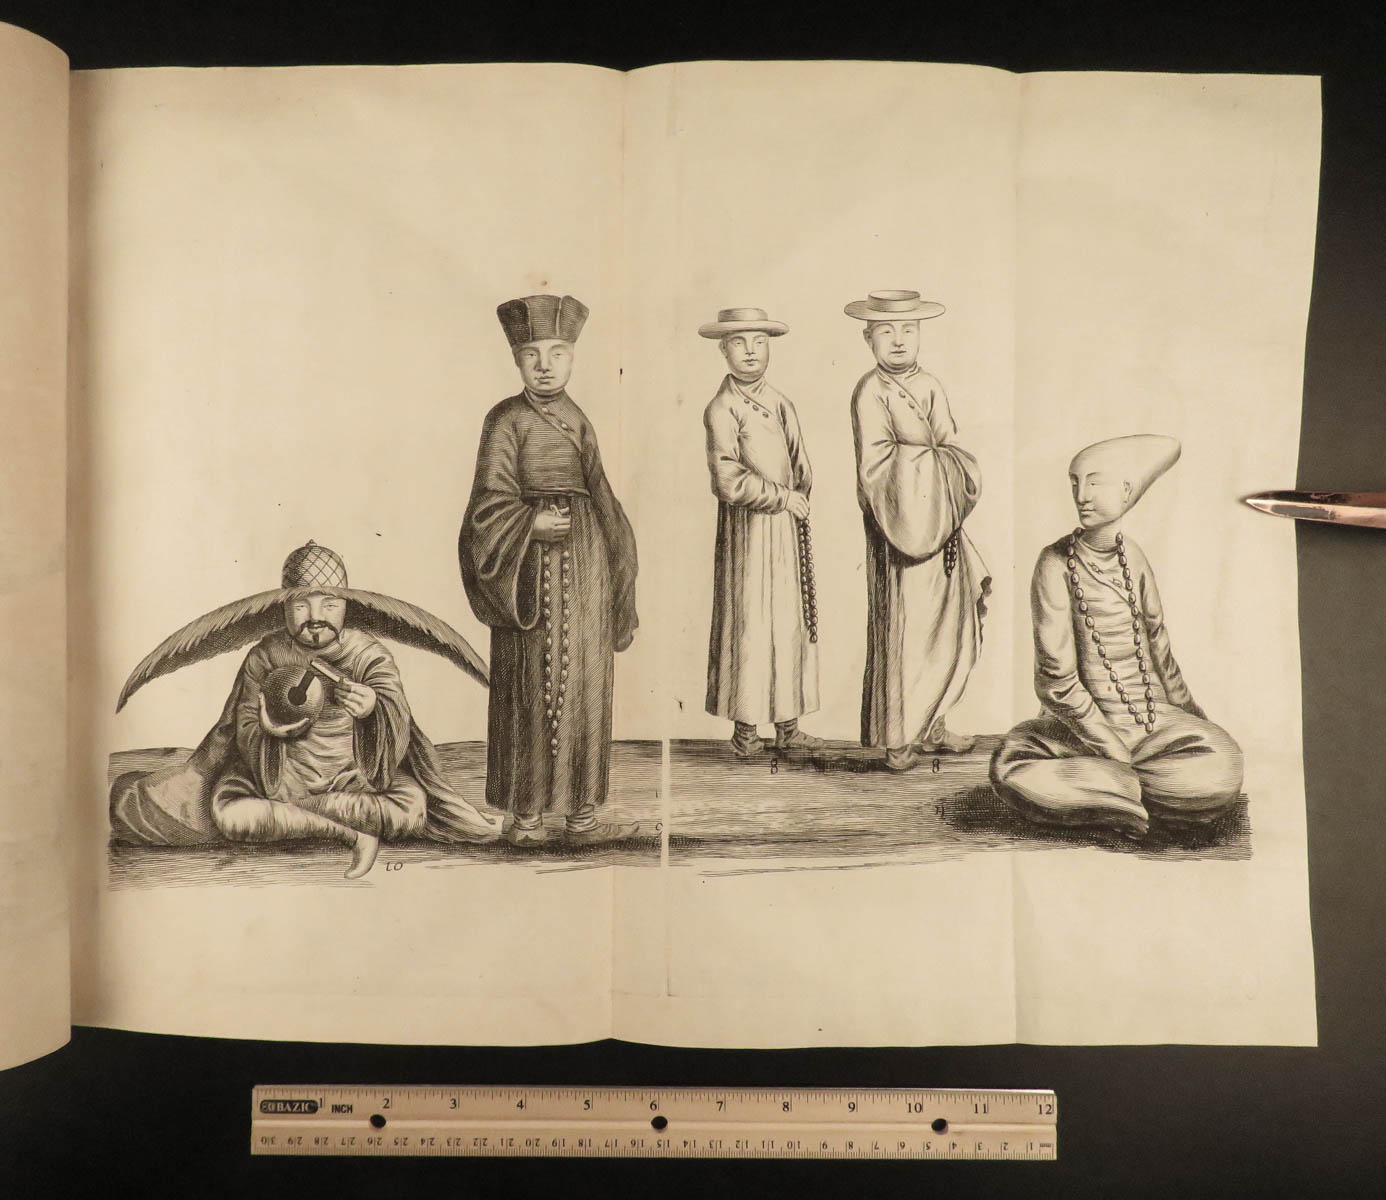 8 8
10
BAZIC 1 INCH 2 3 4 5 6 7 8 9 10 11 12
30 29 28 27 26 25 24 23 22 21 20 19 18 17 16 15 14 13 12 11 10 9 8 7 6 5 4 3 2 1 mm